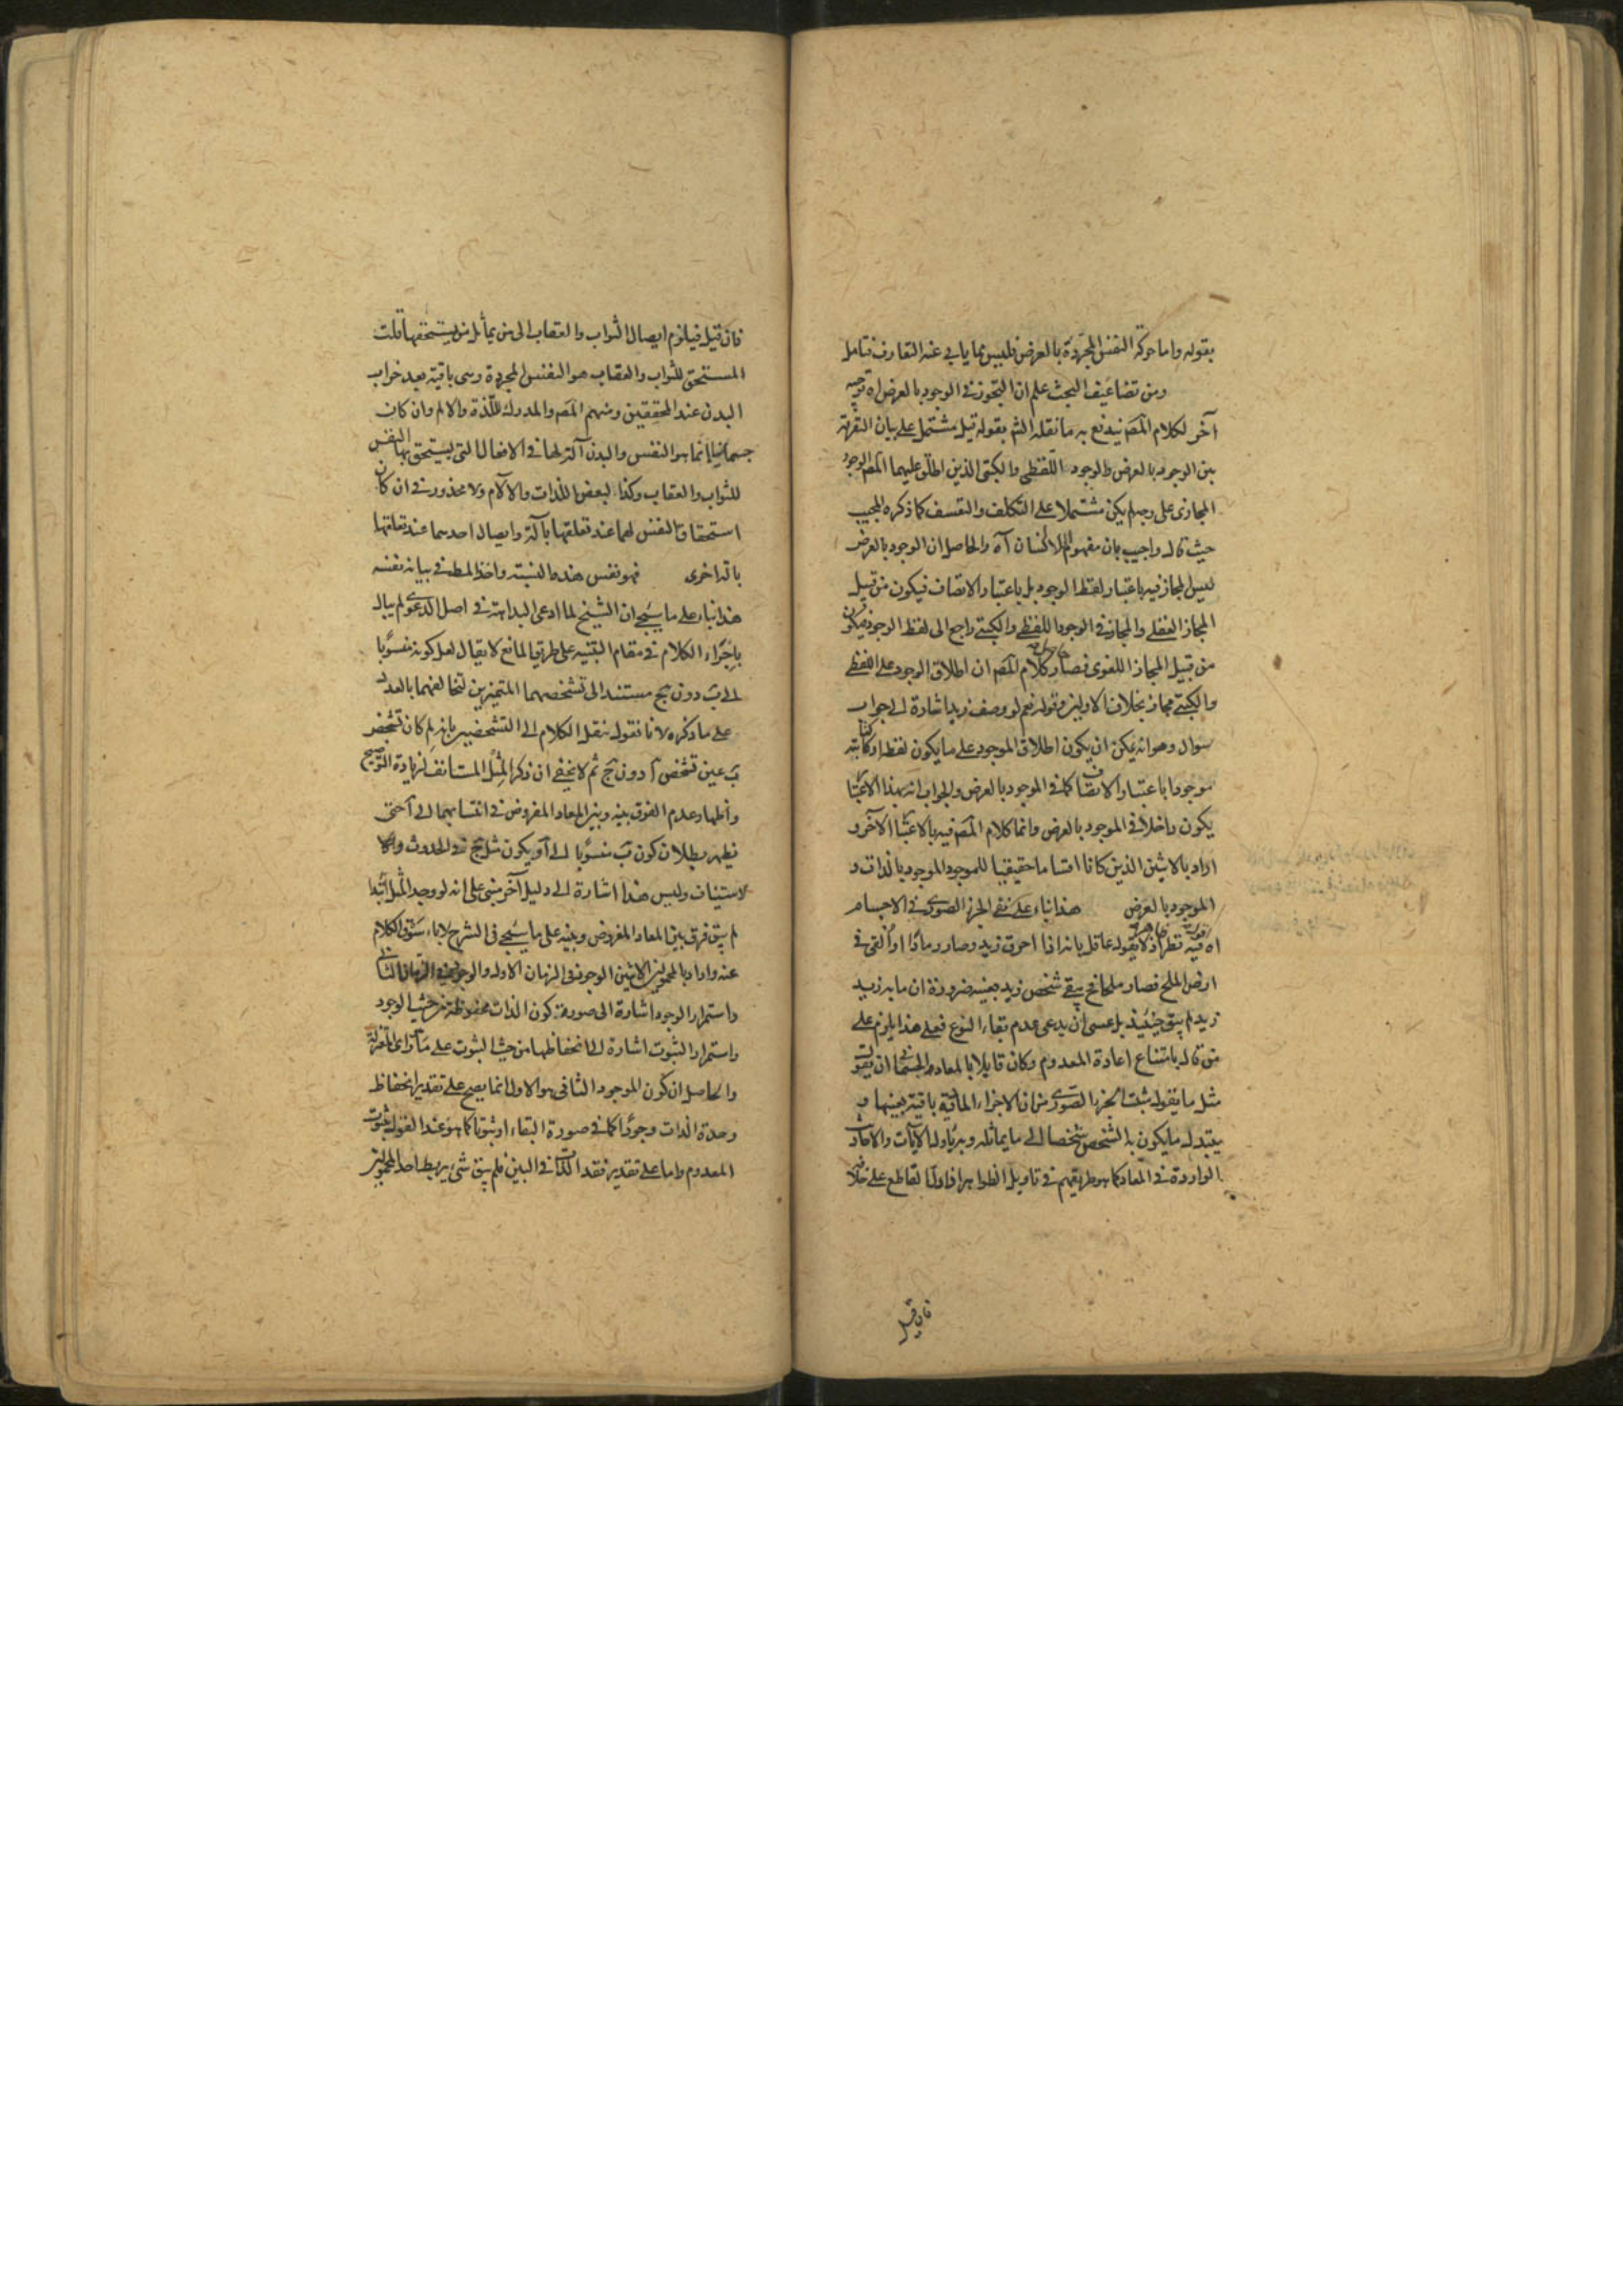 بقوله واما حركة النفس المجردة بالعرض فليس مما يابى عنه التعارف تامل
ومن تضاعيف البحث علم ان التجوز في الوجود بالعرض له توجيه
آخر لكلام المص يندفع به ما نقله الشم بقوله قيل مشتمل على بيان التفرقة
بين الوجود بالعرض والوجود اللفظي والكتبي الذين اطلق عليهما المص الوجود
المجازي على وجه لم يكن مشتملا على التكلف والتعسف كما ذكره المجيب
حيث قال واجيب بان مفهوم اللاانسان آه والحاصل ان الوجود بالعرض
ليس المجاز فيه باعتبار لفظ الوجود بل باعتبار الاتصاف فيكون من قبيل
المجاز العقلي والمجاز في الوجود اللفظي والكتبي راجع الى لفظ الوجود فيكون
من قبيل المجاز اللغوي فصار حاصل كلام المص ان اطلاق الوجود على اللفظي
والكتبي مجاز بخلاف الاولين وقوله نعم لو وصف زيد اشارة الى جواب
سوال وهو انه يمكن ان يكون اطلاق الموجود على ما يكون لفظه او كتابته
موجودا باعتبار الاتصاف كما في الموجود بالعرض والجواب انه بهذا الاعتبار
يكون داخلا في الموجود بالعرض وانما كلام المص فيه بالاعتبار الآخر و
اراد بالاثنين الذين كانا اقساما حقيقيا للموجود الموجود بالذات و
الموجود بالعرض هذا بناء على نفي الجزء الصوري في الاجسام
اه فيه نظر اذ لا يقول عاقل بانه اذا احرق زيد وصار رمادا او القي في
ارض الملح فصار ملحا فح يبقى شخص زيد بعينه ضرورة ان ما به زيد
زيد لم يبق حينئذ بل عسى ان يدعى عدم بقاء النوع فعلى هذا يلزم على
من قال بامتناع اعادة المعدوم وكان قايلا بالمعاد الجسماني ان يقول
مثل ما يقول مثبت الجزء الصوري من ان الاجزاء المادية باقية بعينها و
يتبدل ما يكون به الشخص شخصا الى ما يماثله وبه ياول الآيات والاحاديث
الواردة في المعاد كما هو طريقهم في تاويل الظواهر اذا دل القاطع على خلافه
فان قيل
فان قيل فيلزم ايصال الثواب والعقاب الى من يماثل من يستحقها قلت
المستحق للثواب والعقاب هو النفس المجردة وهي باقية بعد خراب
البدن عند المحققين ومنهم المص والمدرك للذة والالم وان كان
جسمانيا انما هو النفس والبدن آلة لها في الافعال التي يستحق بها النفس
للثواب والعقاب وكذا لبعض اللذات والآلام ولا محذور في ان كان
استحقاق النفس لهما عند تعلقها بآلة وايصال احدهما عند تعلقها
بآلة اخرى فهو نفس هذه النسبة واخذ المط في بيان نفسه
هذا بناء على ما سيجئ ان الشيخ لما ادعى البداهة في اصل الدعوى لم يبال
باجراء الكلام في مقام التنبيه على طريق المانع لا يقال لعل كونه منسوبا
الى ب دون ج مستند الى تشخصهما المتميزين لتخالفهما بالعدد
على ما ذكره لانا نقول ننقل الكلام الى التشخصين بانه لم كان تشخص
ب عين تشخص آ دون ج ثم لا يخفى ان ذكر المثل المستانف لزيادة التوضيح
واظهار عدم الفرق بينه وبين المعاد المفروض في انتسابهما الى آ حتى
يظهر بطلان كون ب منسوبا الى آ ويكون مثل ج في الحدوث والا
لاستيناف وليس هذا اشارة الى دليل آخر مبني على انه لو وجد المثل ابتداء
لم يبق فرق بين المعاد المفروض وبينه على ما سيجئ في الشرح لاباء سوق الكلام
عنه واراد بالمحمولين الاثنين الوجود في الزمان الاول والوجود في الزمان الثاني
واستمرار الوجود اشارة الى صورة كون الذات محفوظة من حيث الوجود
واستمرار الثبوت اشارة الى انحفاظها من حيث الثبوت على ما راى المعتزلة
والحاصل ان كون الموجود الثاني هو الاول انما يصح على تقدير انحفاظ
وحدة الذات وجودا كما في صورة البقاء او ثبوتا كما هو عند القول بثبوت
المعدوم واما على تقدير فقد الذات في البين فلم يبق شئ يربط احد المحمولين